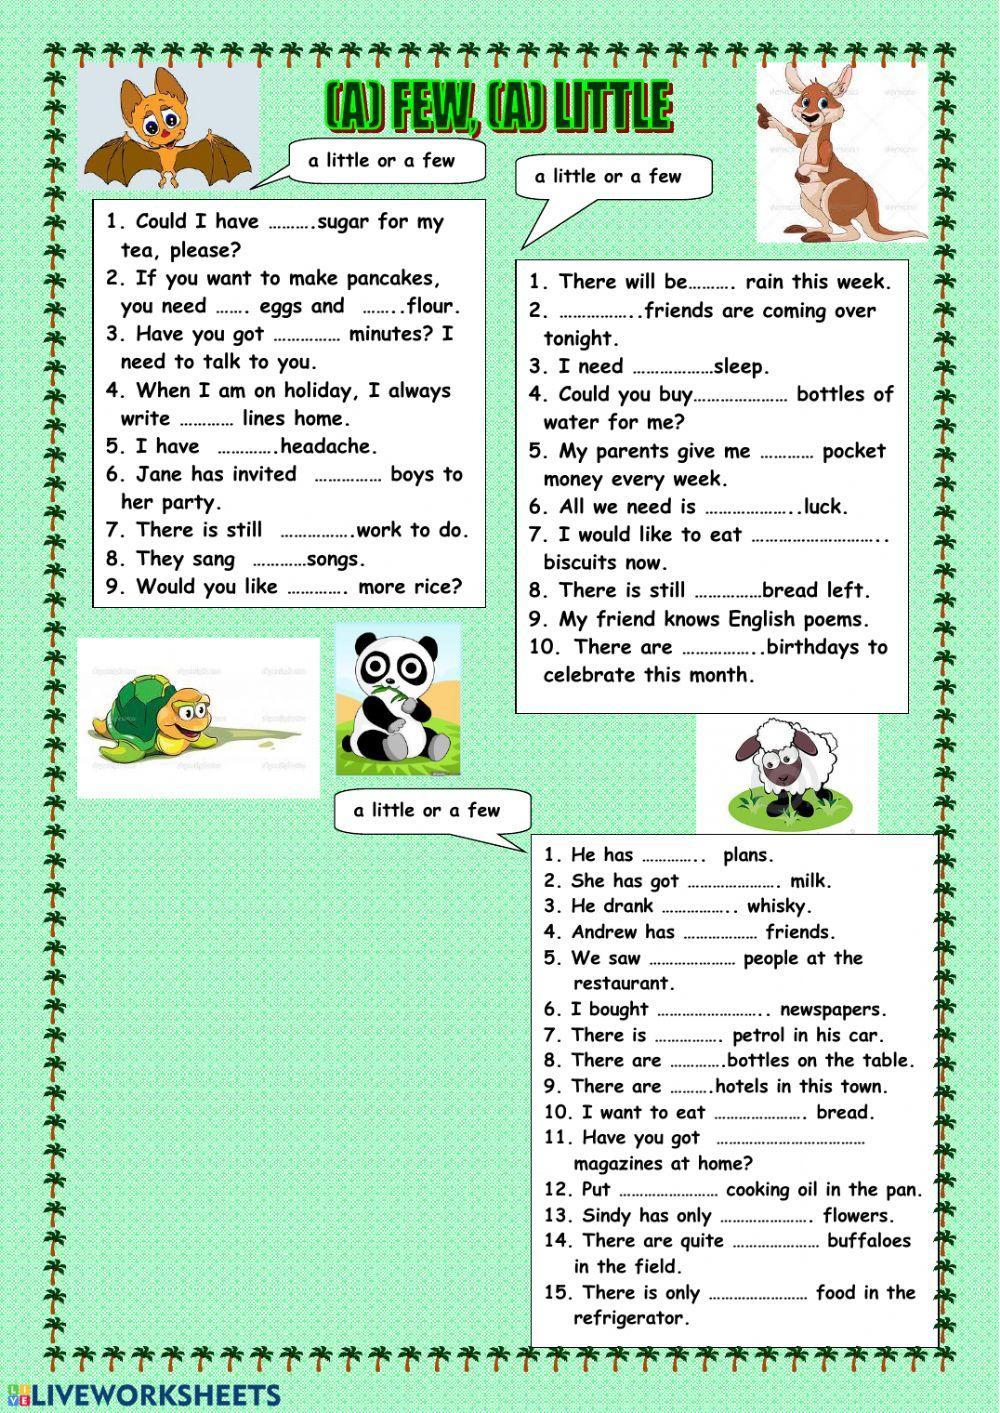 (A) FEW, (A) LITTLE
a little or a few
1. Could I have ……….sugar for my
tea, please?
2. If you want to make pancakes,
you need ……. eggs and ……..flour.
3. Have you got …………… minutes? I
need to talk to you.
4. When I am on holiday, I always
write ………… lines home.
5. I have ………….headache.
6. Jane has invited …………… boys to
her party.
7. There is still …………….work to do.
8. They sang …………songs.
9. Would you like …………. more rice?
a little or a few
1. There will be………. rain this week.
2. ……………..friends are coming over
tonight.
3. I need ………………sleep.
4. Could you buy………………… bottles of
water for me?
5. My parents give me ………… pocket
money every week.
6. All we need is ………………..luck.
7. I would like to eat ………………………..
biscuits now.
8. There is still ……………bread left.
9. My friend knows English poems.
10. There are ……………..birthdays to
celebrate this month.
a little or a few
1. He has ………….. plans.
2. She has got …………………. milk.
3. He drank …………….. whisky.
4. Andrew has ……………… friends.
5. We saw ………………… people at the
restaurant.
6. I bought …………………….. newspapers.
7. There is ……………. petrol in his car.
8. There are ………….bottles on the table.
9. There are ……….hotels in this town.
10. I want to eat …………………. bread.
11. Have you got ………………………………
magazines at home?
12. Put …………………… cooking oil in the pan.
13. Sindy has only …………………. flowers.
14. There are quite ………………… buffaloes
in the field.
15. There is only …………………… food in the
refrigerator.
LIVEWORKSHEETS